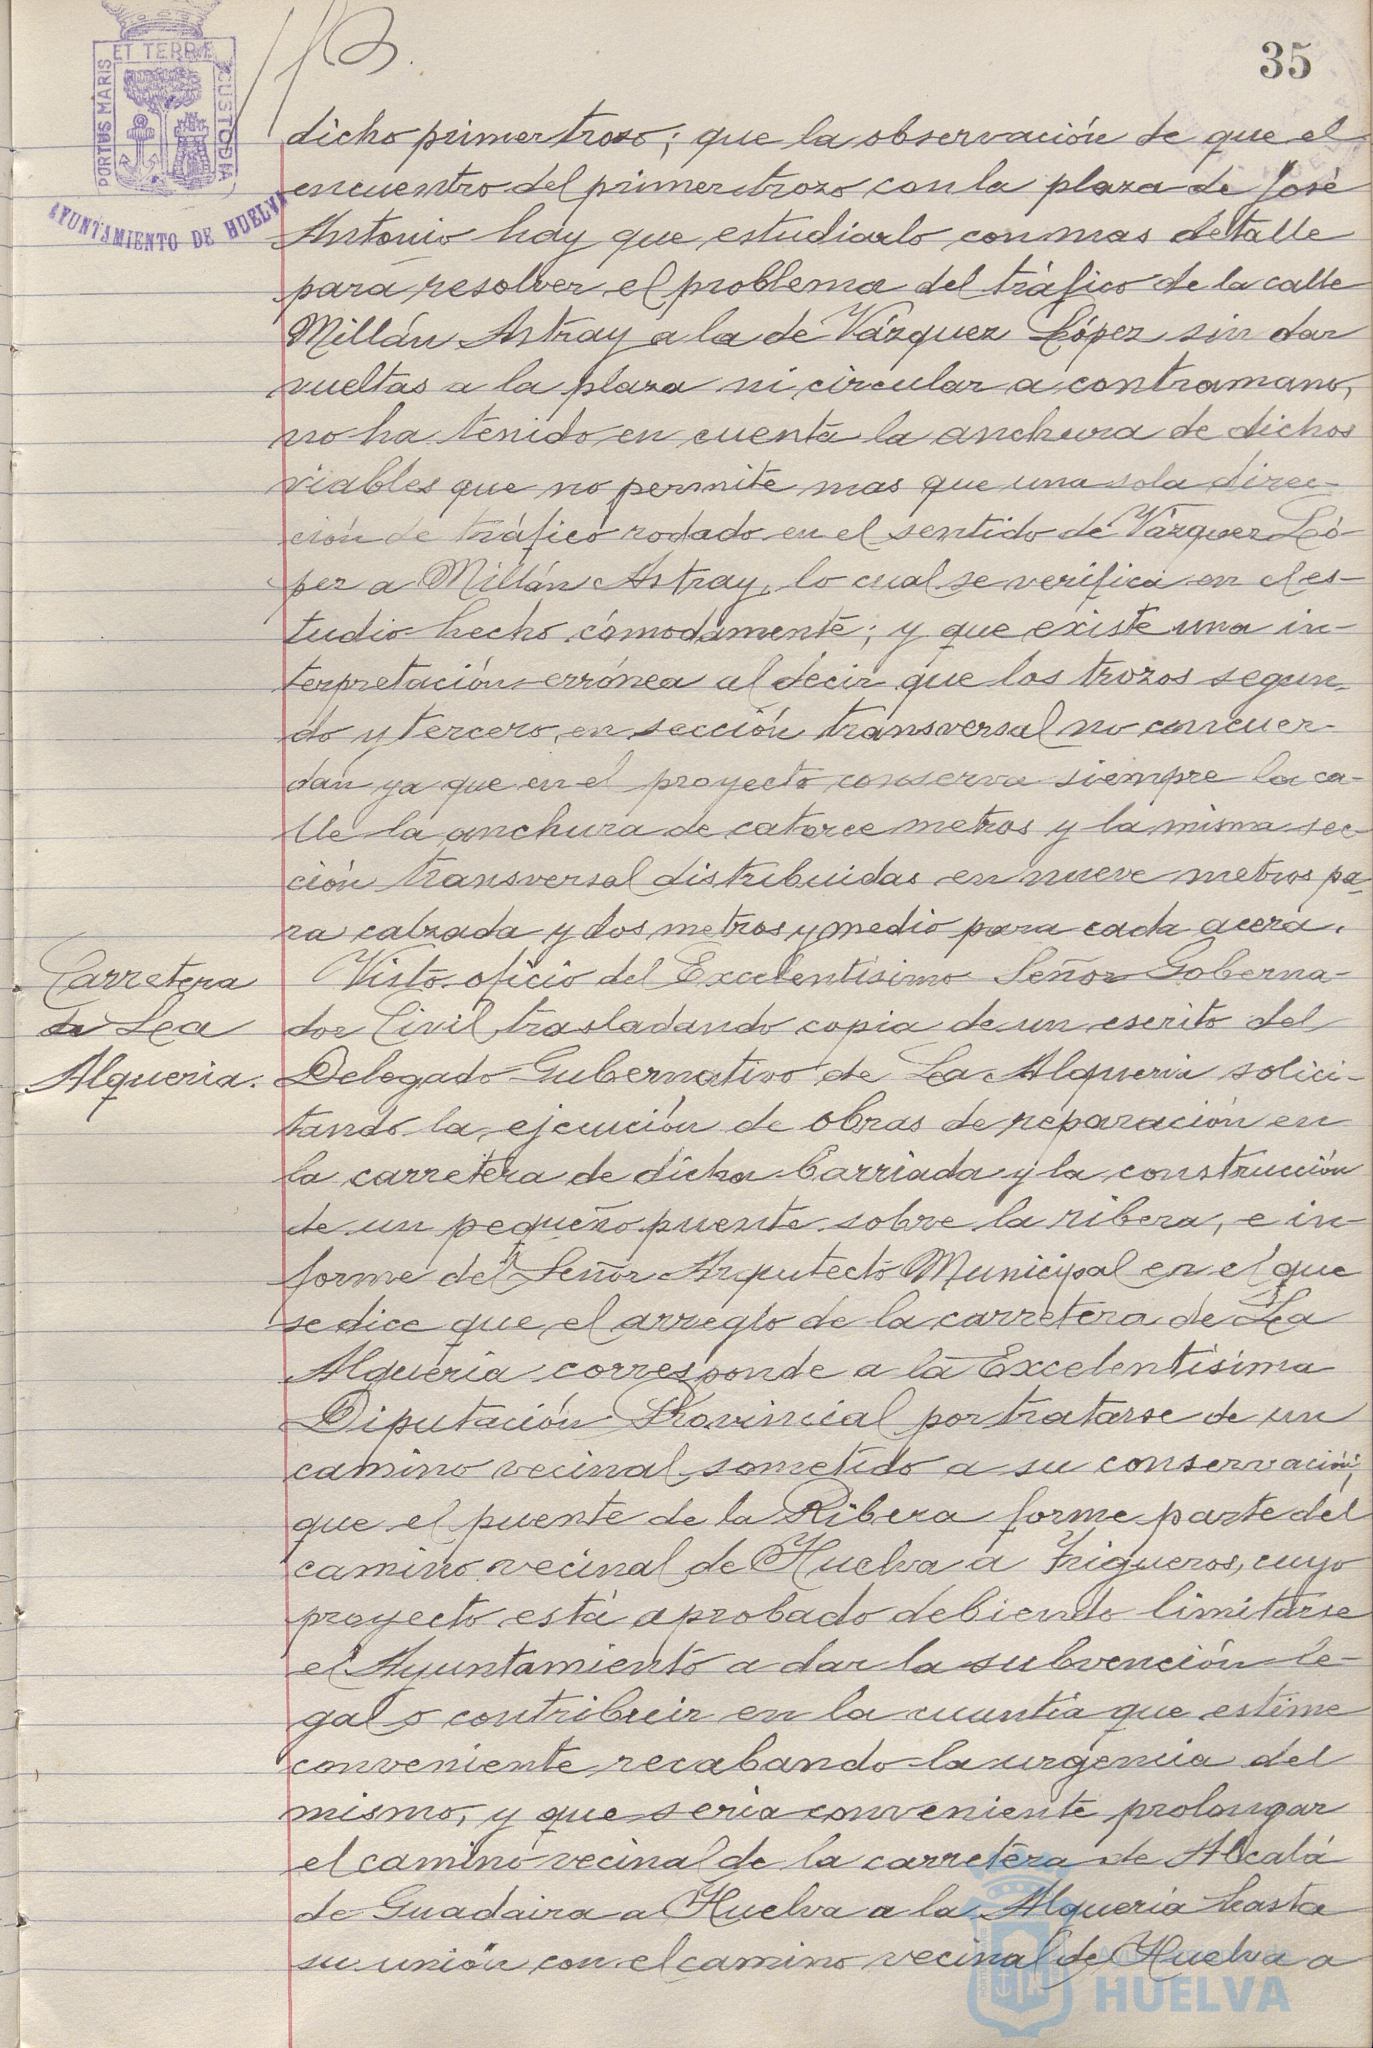 35
PORTUS MARIS ET TERRÆ CUSTODIA
AYUNTAMIENTO DE HUELVA
dicho primer trozo; que la observación de que el
encuentro del primer trozo con la plaza de José
Antonio hay que estudiarlo con mas detalle
para resolver el problema del tráfico de la calle
Millán Astray a la de Vázquez López sin dar
vueltas a la plaza ni circular a contramano,
no ha tenido en cuenta la anchura de dichos
viables que no permite mas que una sola direc-
ción de tráfico rodado en el sentido de Vázquez Ló-
pez a Millán Astray, lo cual se verifica en el es-
tudio hecho cómodamente; y que existe una in-
terpretación errónea al decir que los trozos segun-
do y tercero, en sección transversal no concuer-
dan ya que en el proyecto conserva siempre la ca-
lle la anchura de catorce metros y la misma sec-
ción transversal distribuidas en nueve metros pa-
ra calzada y dos metros y medio para cada acera.
Carretera
de La
Alqueria.
Visto oficio del Excelentísimo Señor Goberna-
dor Civil trasladando copia de un escrito del
Delegado Gubernativo de La Alqueria solici-
tando la ejecución de obras de reparación en
la carretera de dicha barriada y la construcción
de un pequeño puente sobre la ribera, e in-
forme del Señor Arquitecto Municipal en el que
se dice que el arreglo de la carretera de La
Alqueria corresponde a la Excelentísima
Diputación Provincial por tratarse de un
camino vecinal sometido a su conservación;
que el puente de la Ribera forme parte del
camino vecinal de Huelva a Trigueros, cuyo
proyecto está aprobado debiendo limitarse
el Ayuntamiento a dar la subvención le-
gal o contribuir en la cuantía que estime
conveniente recabando la urgencia del
mismo, y que seria conveniente prolongar
el camino vecinal de la carretera de Alcalá
de Guadaira a Huelva a la Alqueria hasta
su unión con el camino vecinal de Huelva a
HUELVA